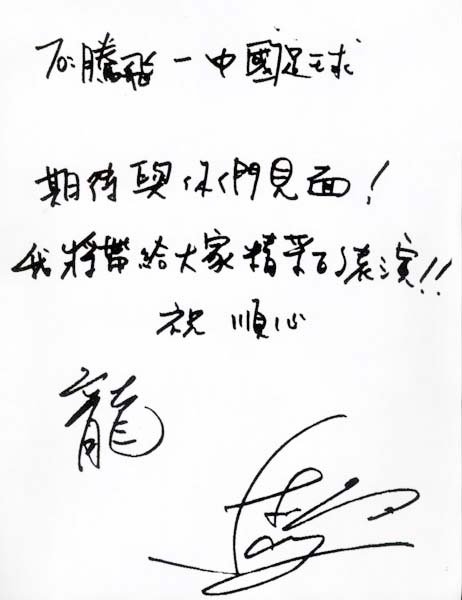 To:騰飛－中國足球
期待與你們見面！
我將帶給大家精采的表演!!
祝 順心
龍